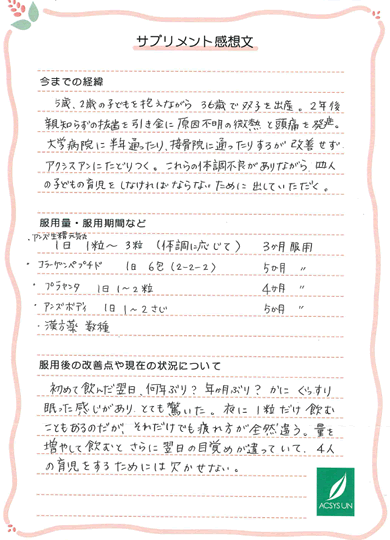 サプリメント感想文
今までの経緯
5歳、2歳の子どもを抱えながら 36歳で双子を出産。2年後
親知らずの抜歯を引き金に原因不明の微熱と頭痛を発症。
大学病院に半年通ったり、接骨院に通ったりするが改善せず
アクシスアンにたどりつく。これらの体調不良がありながら 四人
の子どもの育児をしなければならないために出していただく。
服用量・服用期間など
・アンズ生精
1日 1粒〜3粒 (体調に応じて) 3ヶ月服用
・コラーゲンペプチド 1日 6包 (2-2-2) 5ヶ月 〃
・プラセンタ 1日 1〜2粒 4ヶ月 〃
・アンズボディ 1日 1〜2さじ 5ヶ月 〃
・漢方薬 数種
服用後の改善点や現在の状況について
初めて飲んだ翌日、何年ぶり? 年ヶ月ぶり? かに ぐっすり
眠った感じがあり、とても驚いた。夜に1粒だけ飲む
こともあるのだが、それだけでも疲れ方が全然違う。量を
増やして飲むと さらに翌日の目覚めが違っていて、4人
の育児をするためには欠かせない。
ACSYSUN